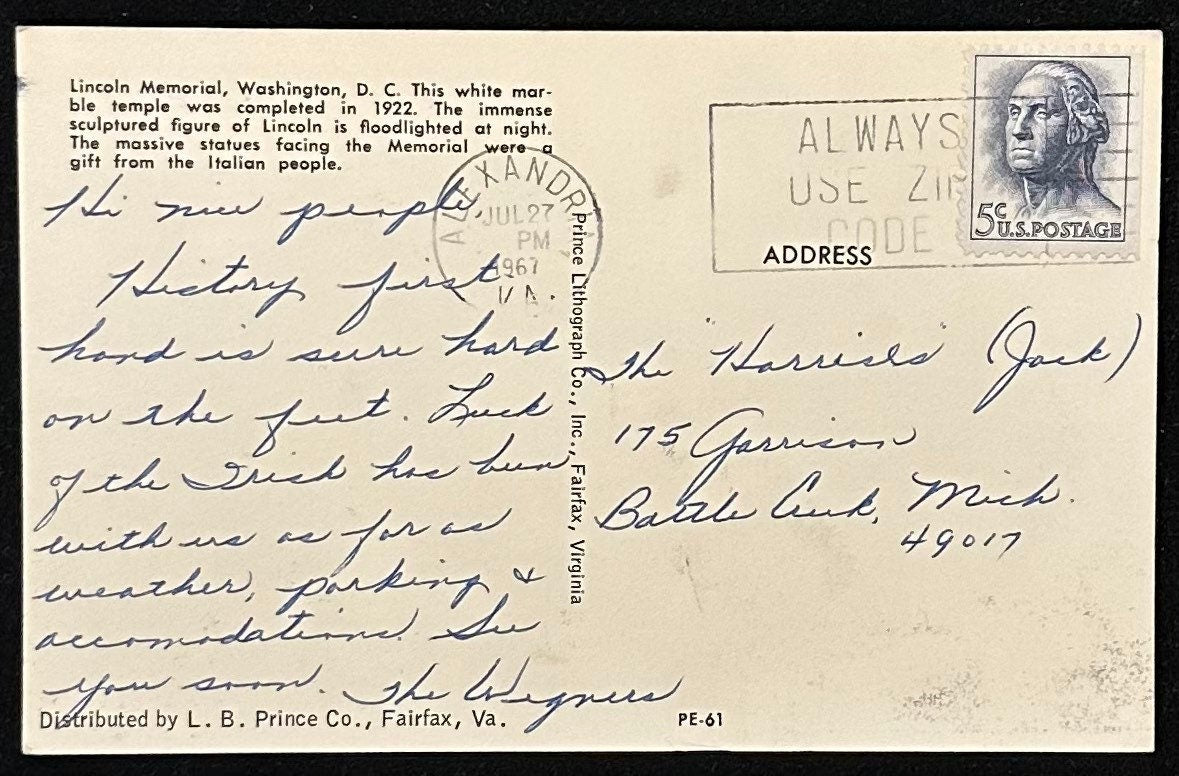 Lincoln Memorial, Washington, D. C. This white mar-
ble temple was completed in 1922. The immense
sculptured figure of Lincoln is floodlighted at night.
The massive statues facing the Memorial were a
gift from the Italian people.
Hi nice people,
History first
hand is sure hard
on the feet. Luck
of the Irish has been
with us as far as
weather, parking &
accomodations. See
you soon. The Wegners
Distributed by L. B. Prince Co., Fairfax, Va.
PE-61
Prince Lithograph Co., Inc., Fairfax, Virginia
ALEXANDRIA
JUL 27
PM
1967
VA.
ALWAYS
USE ZIP
CODE
5c
U.S. POSTAGE
ADDRESS
The "Harrises" (Jack)
175 Garrison
Battle Creek, Mich.
49017